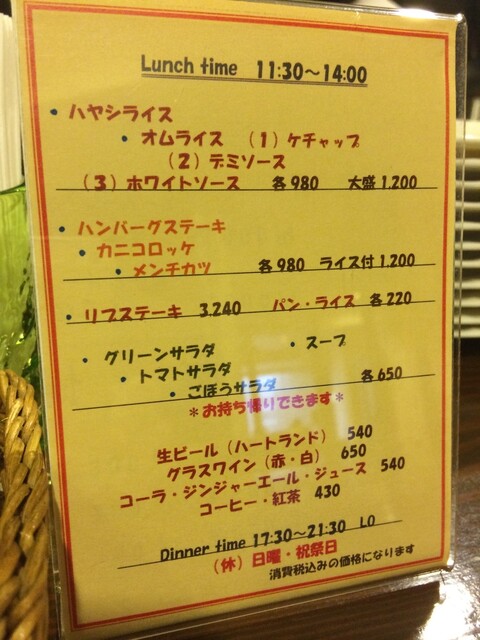 Lunch time 11:30〜14:00
・ハヤシライス
・オムライス (1)ケチャップ
(2)デミソース
(3)ホワイトソース 各980 大盛1,200
・ハンバーグステーキ
・カニコロッケ
・メンチカツ 各980 ライス付1,200
・リブステーキ 3,240 パン・ライス 各220
・グリーンサラダ ・スープ
・トマトサラダ
・ごぼうサラダ 各650
*お持ち帰りできます*
生ビール(ハートランド) 540
グラスワイン(赤・白) 650
コーラ・ジンジャーエール・ジュース 540
コーヒー・紅茶 430
Dinner time 17:30〜21:30 LO
(休)日曜・祝祭日
消費税込みの価格になります